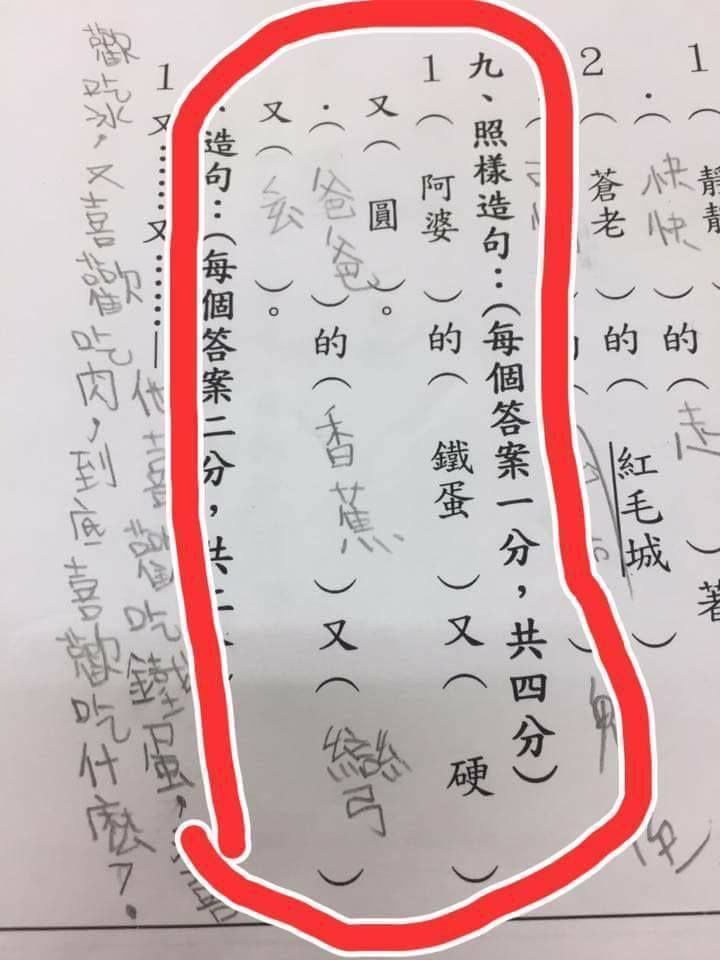 1（靜靜
．（快快）的（走）著
2（蒼老）的（紅毛城）
九、照樣造句：（每個答案一分，共四分）
1（阿婆）的（鐵蛋）又（硬）
又（圓）。
．（爸爸）的（香蕉）又（彎）
又（）。
．造句：（每個答案二分，共二
1又……又……—他喜歡吃鐵蛋，
歡吃冰，又喜歡吃肉，到底喜歡吃什麼？